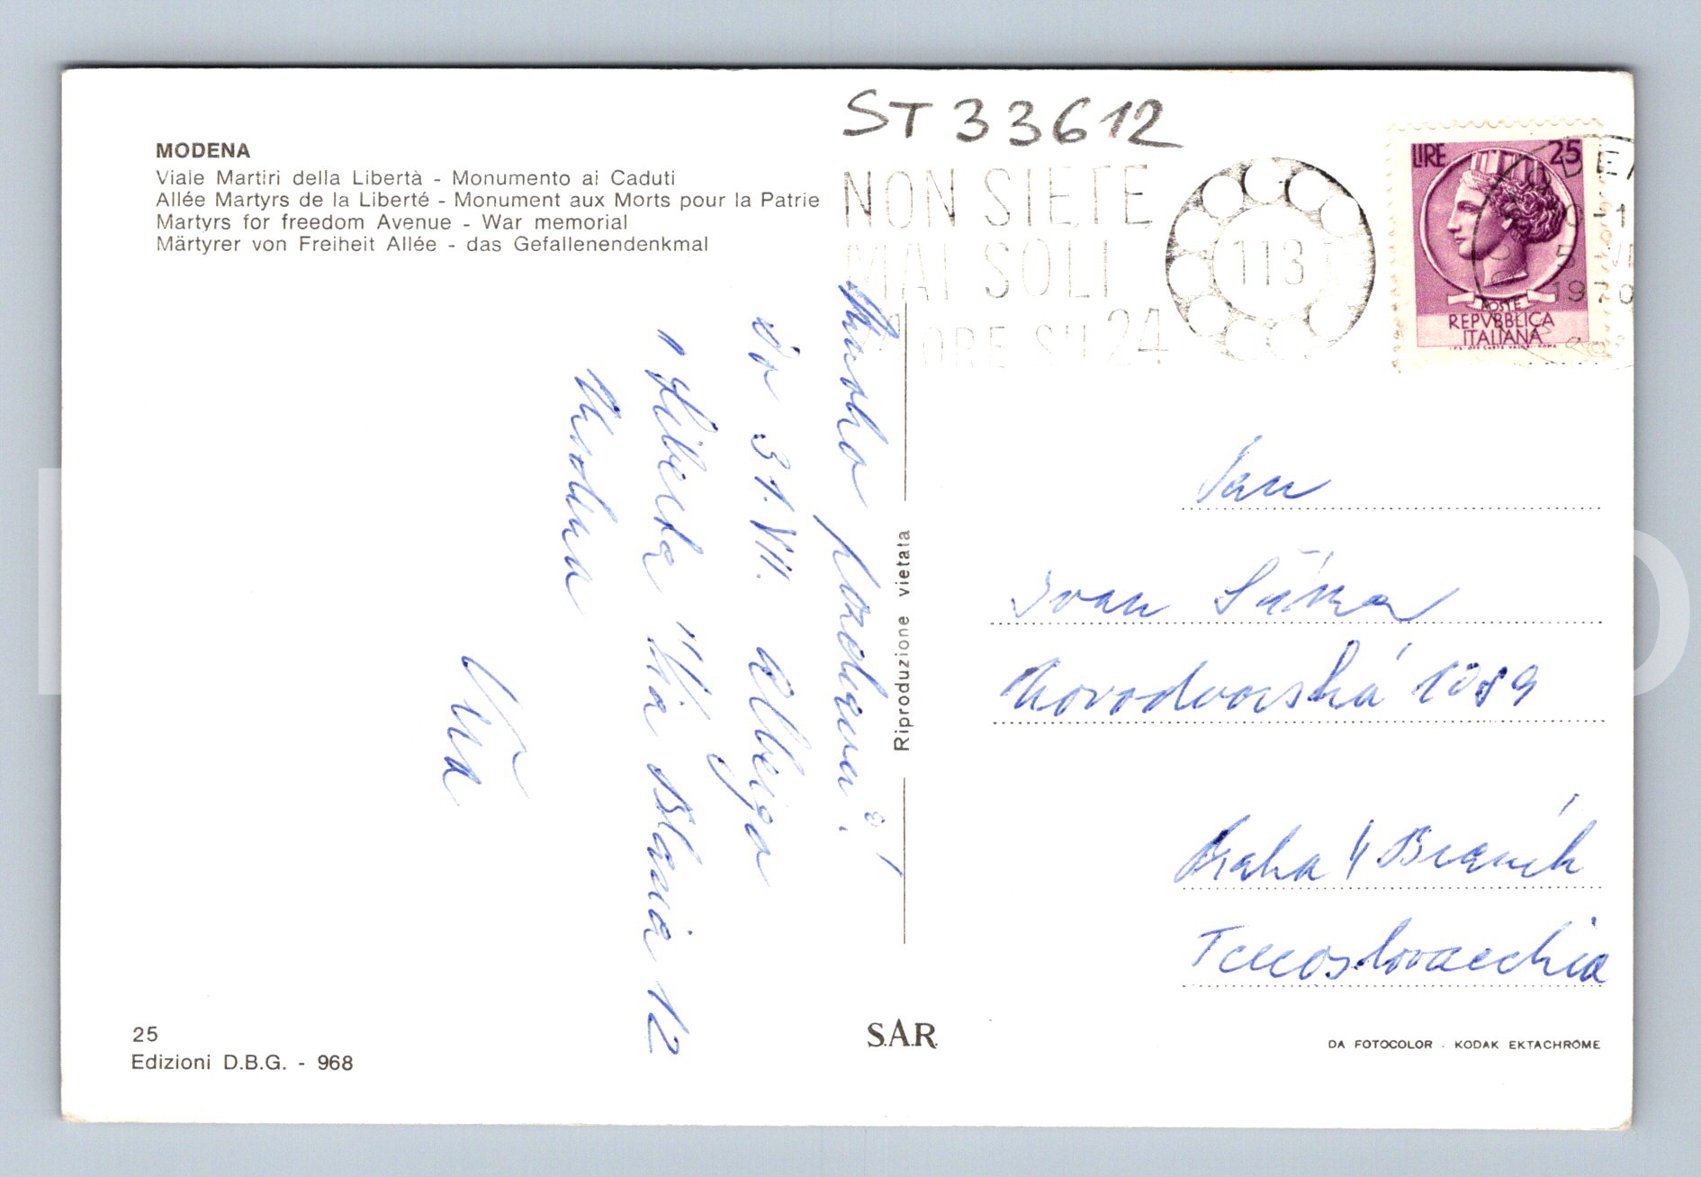 ST 33612
MODENA
Viale Martiri della Libertà - Monumento ai Caduti
Allée Martyrs de la Liberté - Monument aux Morts pour la Patrie
Martyrs for freedom Avenue - War memorial
Märtyrer von Freiheit Allée - das Gefallenendenkmal
NON SIETE
MAI SOLI
ORE SU 24
113
LIRE 25
POSTE
REPVBBLICA
ITALIANA
Mnoho pozdravů.
do 31. VIII. Albergo
Via 12
Modena
Riproduzione vietata
Pan
Ivan
Novodvorská 1089
Praha 4 Braník
Cecoslovacchia
25
Edizioni D.B.G. - 968
S.A.R.
DA FOTOCOLOR - KODAK EKTACHROME